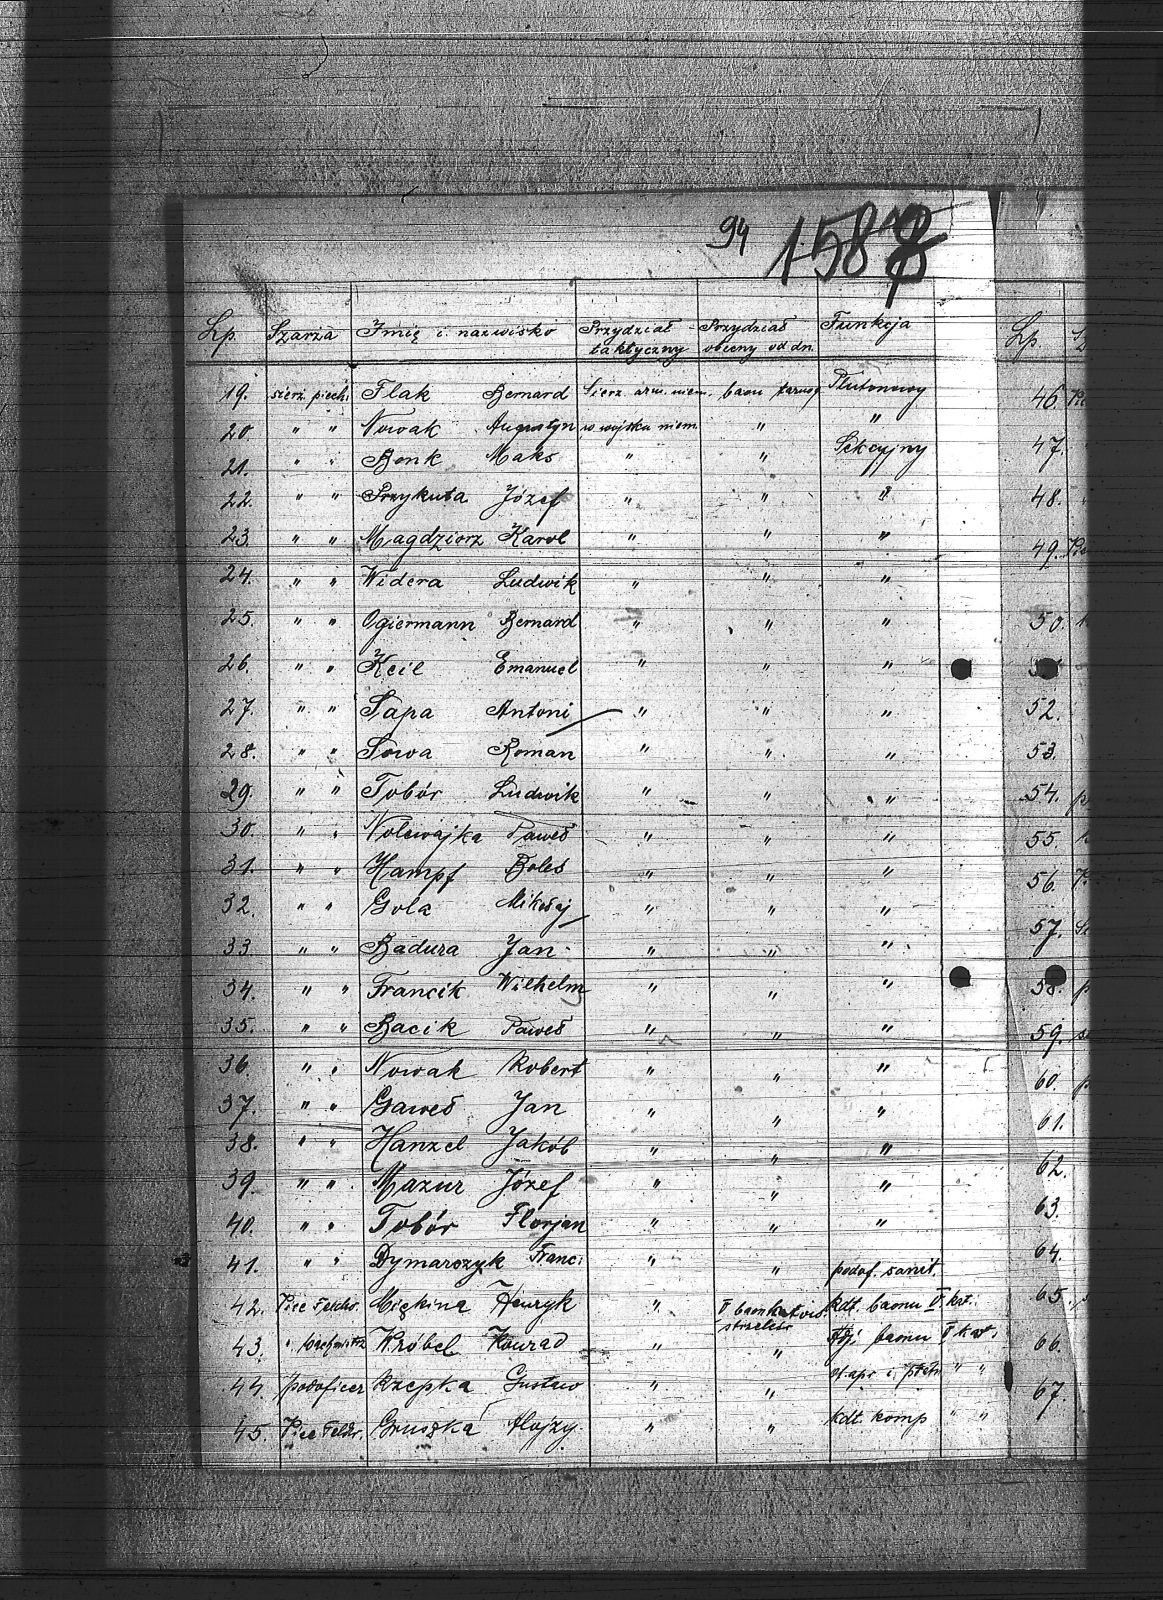 94 158
Lp. Szarża Imię i nazwisko Przydział taktyczny Przydział obecny od dn. Funkcja Lp.
19. sierż. piech. Flak Bernard Sierż. arm. niem. baon Plutonowy 46.
20 " " Nowak Augustyn w wojsku niem. " " 47.
21. " " Bonk Maks " " Sekcyjny
22. " " Przykuta Józef " " " 48.
23. " " Magdziorz Karol " " " 49.
24. " " Widera Ludwik " " "
25. " " Ogiermann Bernard " " " 50.
26. " " Keil Emanuel " " "
27. " " Sapa Antoni " " " 52.
28. " " Sowa Roman " " " 53.
29. " " Tobór Ludwik " " " 54.
30. " " Nolewajka Paweł " " " 55.
31. " " Hampf Boles " " " 56.
32. " " Gola Mikołaj " " " 57.
33 " " Badura Jan " " "
34. " " Francik Wilhelm " " " 58.
35. " " Bacik Paweł " " " 59.
36. " " Nowak Robert " " " 60.
37. " " Gaweł Jan " " " 61.
38. " " Hanzel Jakób " " " 62.
39 " " Mazur Józef " " " 63.
40. " " Tobór Florjan " " "
41. " " Dymarczyk Franc: " " podof. sanit. 64.
42. Vice Miękina Henryk " II baon strzelców kdt. baonu II 65.
43. " Wróbel Konrad " " Adj. baonu II 66.
44. podoficer Rzepka Gustaw " " of. apr. i " " 67.
45. Vice Feldw. Gruszka Alojzy " " kdt. komp " "